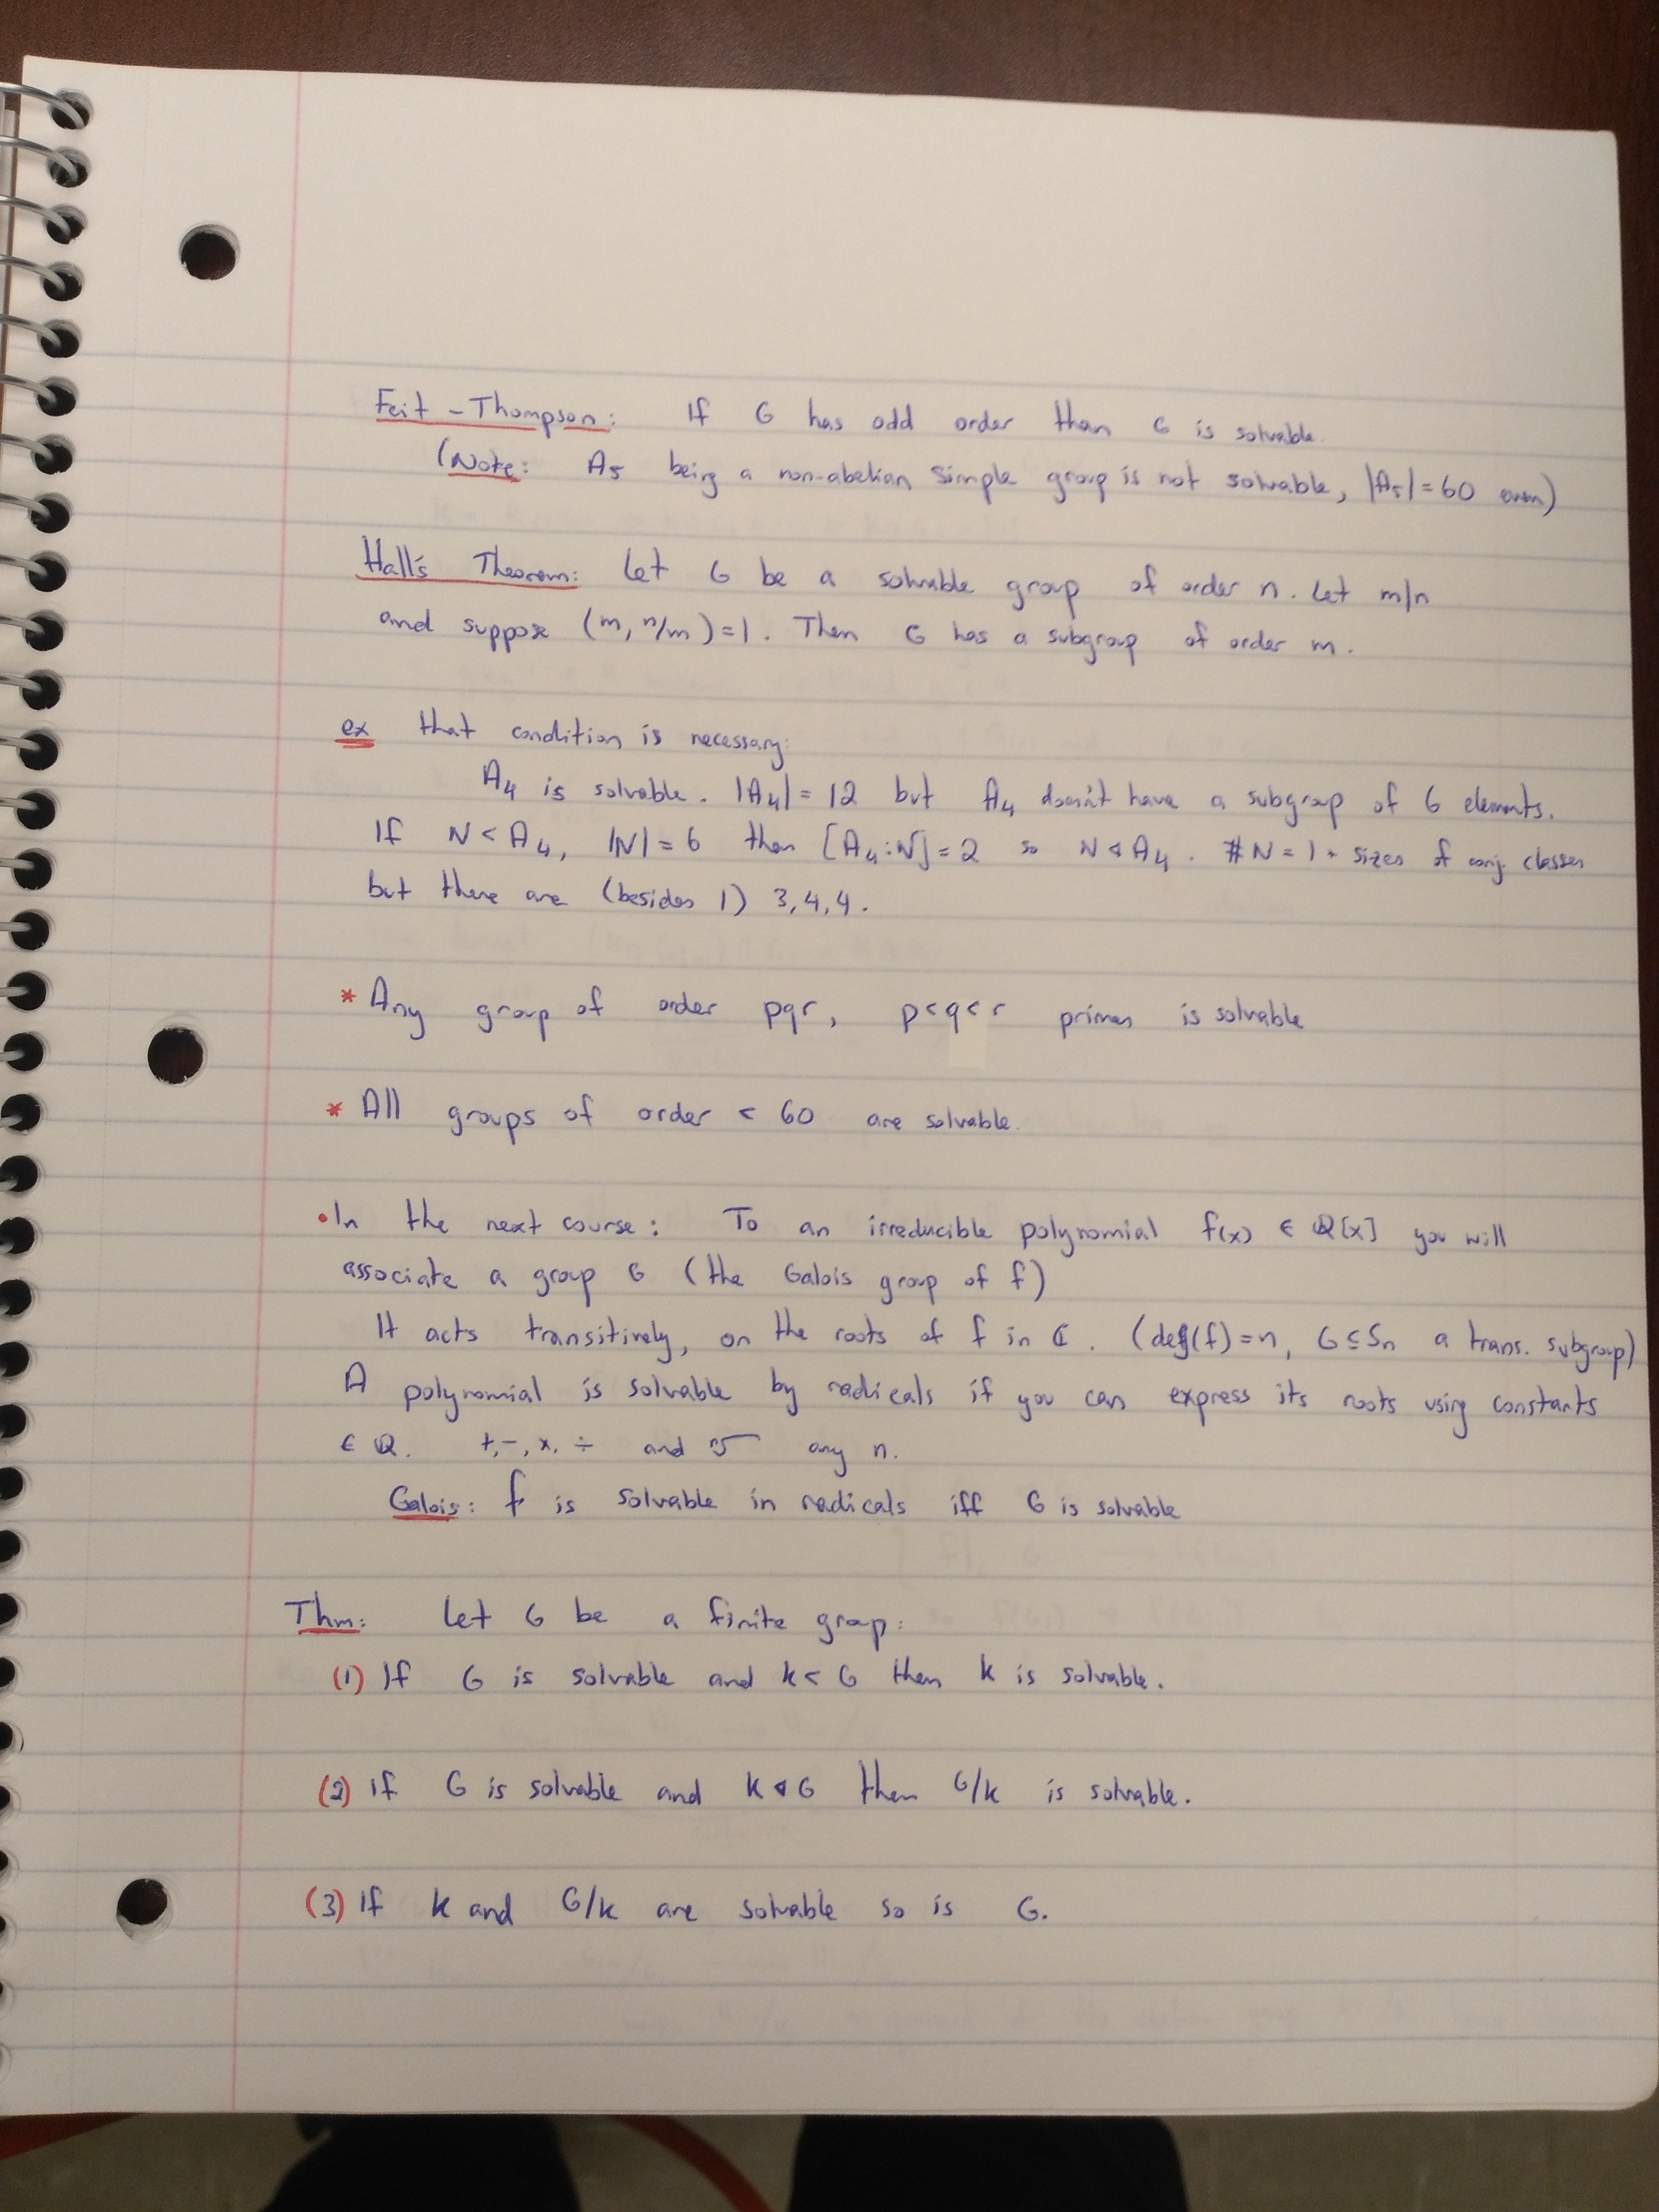 Feit - Thompson: If G has odd order than G is solvable.
(Note: A5 being a non-abelian simple group is not solvable, |A5| = 60 even)
Hall's Theorem: Let G be a solvable group of order n. Let m|n
and suppose (m, n/m) = 1. Then G has a subgroup of order m.
ex that condition is necessary:
A4 is solvable. |A4| = 12 but A4 doesn't have a subgroup of 6 elements.
If N < A4, |N| = 6 then [A4:N] = 2 so N ◁ A4. #N = 1 + sizes of conj. classes
but there are (besides 1) 3,4,4.
* Any group of order pqr, p<q<r primes is solvable
* All groups of order < 60 are solvable.
• In the next course: To an irreducible polynomial f(x) ∈ Q[x] you will
associate a group G (the Galois group of f)
It acts transitively, on the roots of f in ℂ. (deg(f) = n, G ⊆ Sn a trans. subgroup)
A polynomial is solvable by radicals if you can express its roots using constants
∈ Q. +, -, x, ÷ and ⁿ√ any n.
Galois: f is solvable in radicals iff G is solvable
Thm: Let G be a finite group:
(1) If G is solvable and K < G then K is solvable.
(2) if G is solvable and K ◁ G then G/K is solvable.
(3) If K and G/K are solvable so is G.